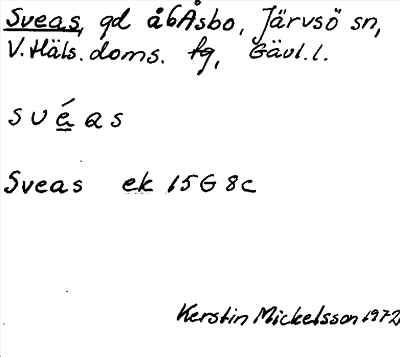 Sveas, gd å6Åsbo, Järvsö sn,
V. Häls. doms. fg, Gävl. l.
svéas
Sveas ek 15G 8c
Kerstin Mickelsson 1972